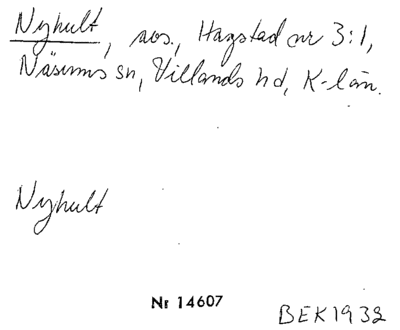 Nyhult, avs., Hagstad nr 3:1,
Näsums sn, Villands hd, K-län.
Nyhult
Nr 14607
BEK1932